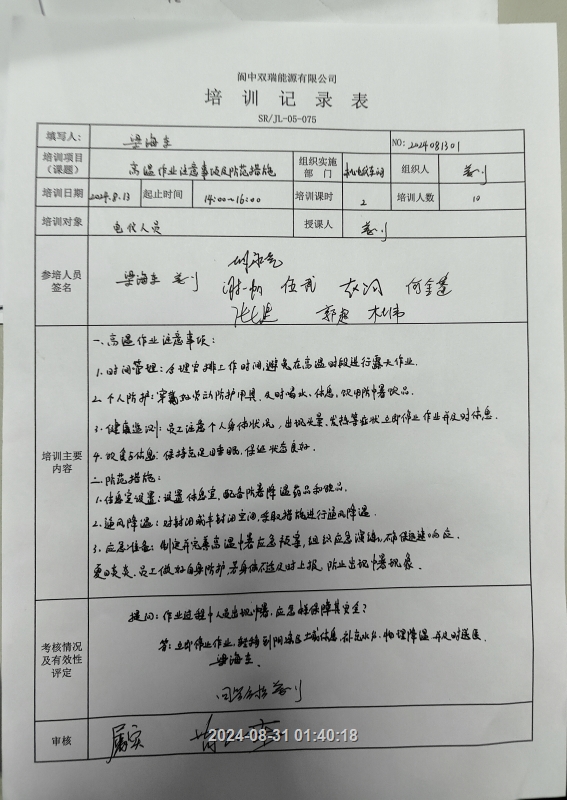 阆中双瑞能源有限公司
培训记录表
SR/JL-05-075
填写人： 梁海生 NO: 2024081301
培训项目（课题） 高温作业注意事项及防范措施 组织实施部门 组织人
培训日期 2024.8.13 起止时间 14:00~16:00 培训课时 2 培训人数 10
培训对象 电仪人员 授课人
参培人员签名
梁海生 伍武 何全蓬
郭超
培训主要内容
一.高温作业注意事项：
1.时间管理：合理安排工作时间，避免在高温时段进行露天作业。
2.个人防护：穿戴好劳动防护用具，及时喝水、休息，饮用防暑饮品。
3.健康监测：员工注意个人身体状况，出现头晕、发热等症状立即停止作业并及时休息。
4.饮食与休息：保持充足睡眠，保证状态良好。
二.防范措施：
1.休息室设置：设置休息室，配备防暑降温药品和饮品。
2.通风降温：对封闭或半封闭空间，采取措施进行通风降温。
3.应急准备：制定并完善高温中暑应急预案，组织应急演练，确保迅速响应。
夏日炎炎，员工做好自身防护，若身体不适及时上报，防止出现中暑现象。
考核情况及有效性评定
提问：作业过程中人员出现中暑，应怎样保障其安全？
答：立即停止作业，转移到阴凉区域休息，补充水分，物理降温并及时送医。
梁海生.
回答合格
审核 属实
2024-08-31 01:40:18